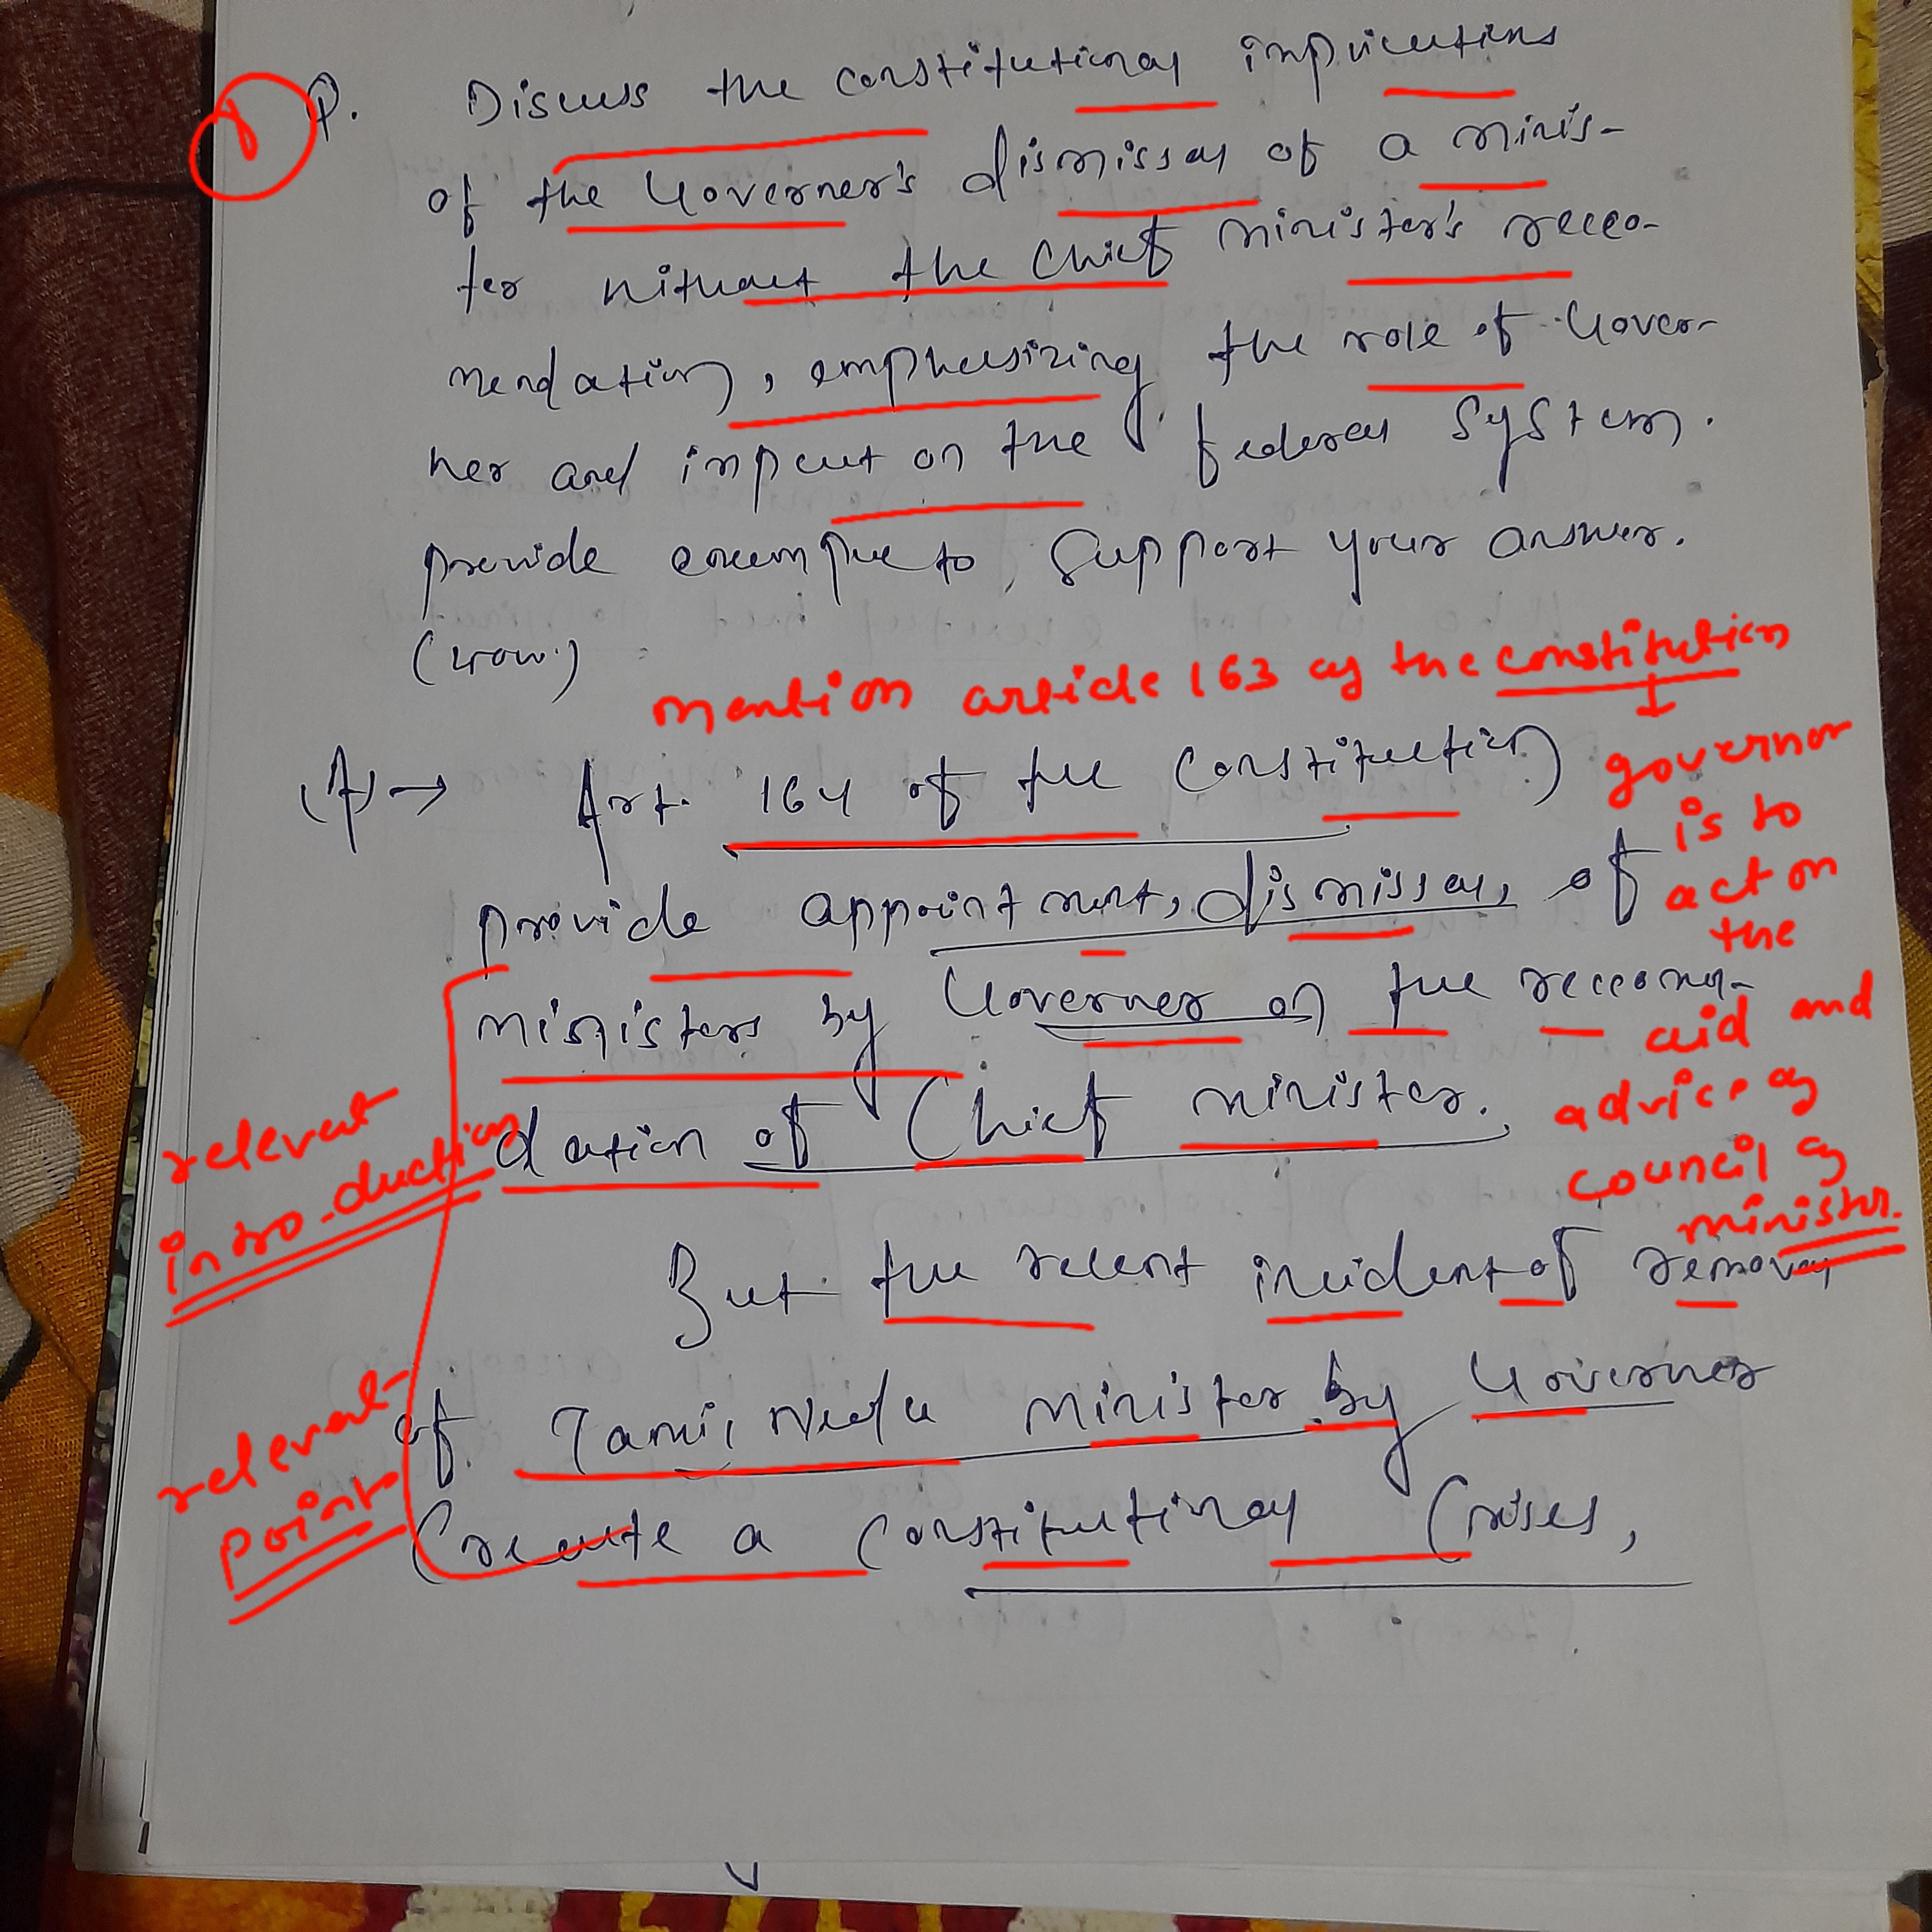 Q. Discuss the constitutional implications
of the Governer's dismissal of a minis-
ter without the Chief Minister's recco-
mendation, emphasizing the role of Gover-
ner and impact on the federal System.
provide example to support your answer.
mention article 163 of the constitution
(A) → Art. 164 of the Constitution
governor
is to
act on
the
aid and
advice of
council of
minister.
provide appointment, dismissal, of
ministers by Governer on the reccomen-
dation of Chief minister.
relevant
introduction
But the recent incident of removal
of Tamil Nadu Minister by Governer
Create a Constitutional Crises,
relevant
point